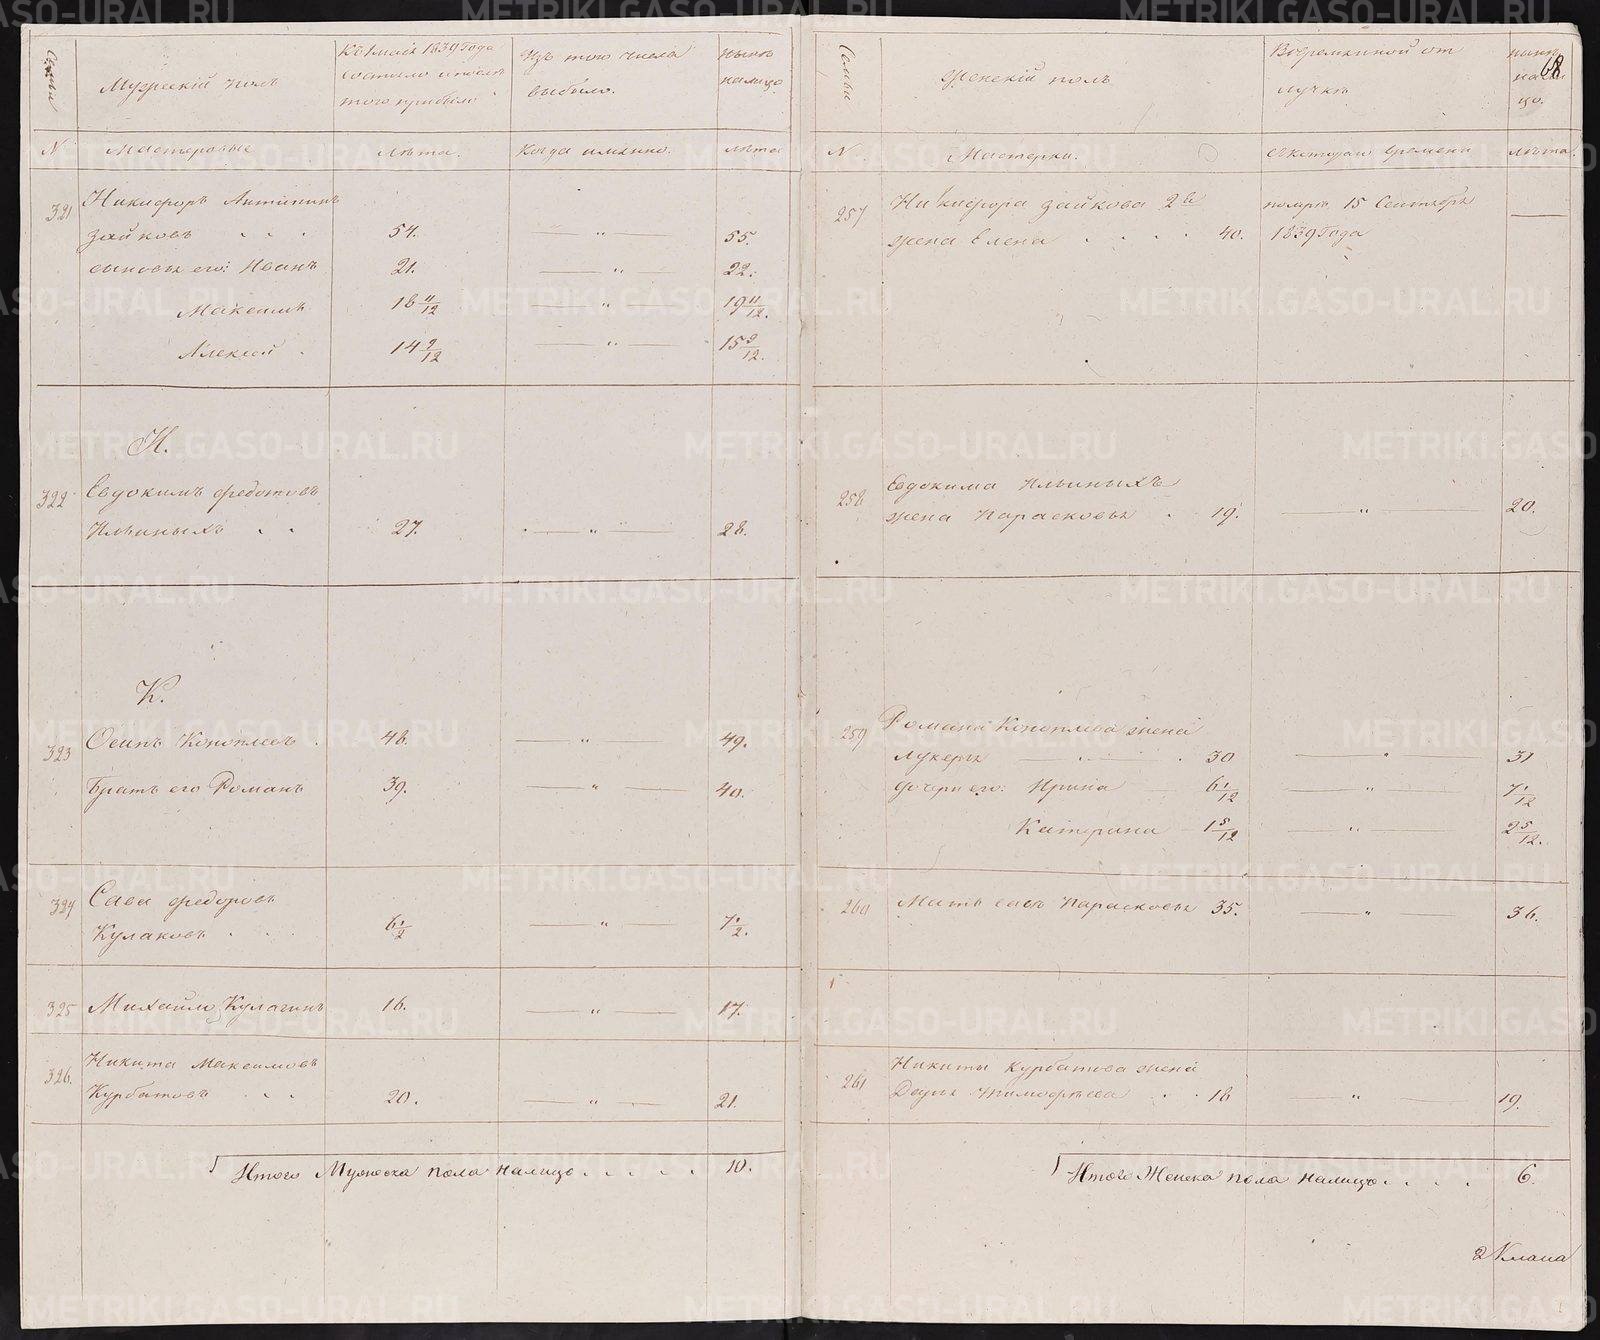 68
Семьи
Мужескій полъ
Къ 1 маія 1839 Года
состояло и после
того прибыло
Изъ того числа
выбыло.
Ныне
на лицо.
N
Мастеровые
лѣта.
Когда именно.
лѣта
321
Никифоръ Антипинъ
Зайковъ . . .
54.
— " —
55.
сыновья его: Иванъ
21.
— " —
22.
Максимъ
18 11/12
— " —
19 11/12.
Алексей .
14 9/12
— " —
15 9/12.
И.
322
Евдокимъ Федотовъ
Ильиныхъ . .
27.
— " —
28.
К.
323
Осипъ Коноплевъ .
48.
— " —
49.
Братъ его Романъ
39.
— " —
40.
324
Сава Федоровъ
Кулаковъ . .
6 1/2
— " —
7 1/2.
325
Михайло Кулагинъ
16.
— " —
17.
326.
Никита Максимовъ
Курбатовъ . . .
20.
— " —
21.
Итого Мужеска пола на лицо . . . . .
10.
Семьи
Женскій полъ
Во временной от
лучке
ныне
на ли
цо.
N.
Мастерки.
съ котораго времени
лѣта.
257
Никифора Зайкова 2я
жена Елена . . . . 40.
померла 15 Сентября
1839 Года
—
258
Евдокима Ильиныхъ
жена Парасковья . 19.
— " —
20.
259
Романа Коноплева жена
Лукерья — . — . 30
— " —
31
дочери его: Ирина 6 1/12
— " —
7 1/12
Катерина 1 5/12
— " —
2 5/12.
260
Мать Савы Парасковья 35.
— " —
36.
261
Никиты Курбатова жена
Дарья Тимофеева . . 18
— " —
19.
Итого Женска пола на лицо . . . .
6.
METRIKI.GASO-URAL.RU